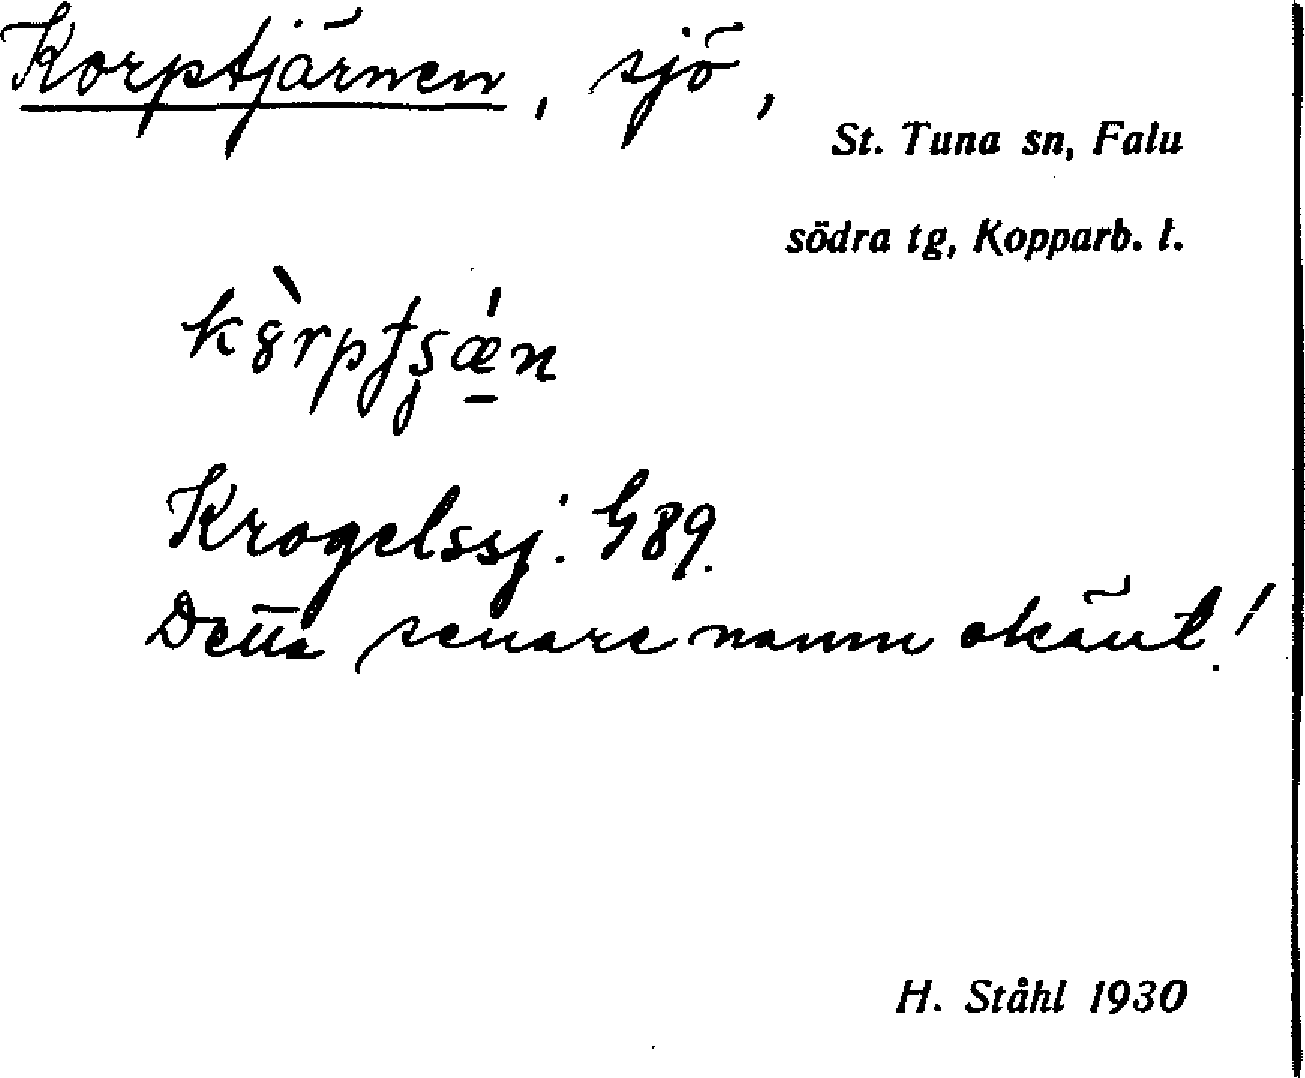 Korptjärnen, sjö,
St. Tuna sn, Falu
södra tg, Kopparb. l.
Krogelssj. G89.
Detta senare namn okänt!
H. Ståhl 1930